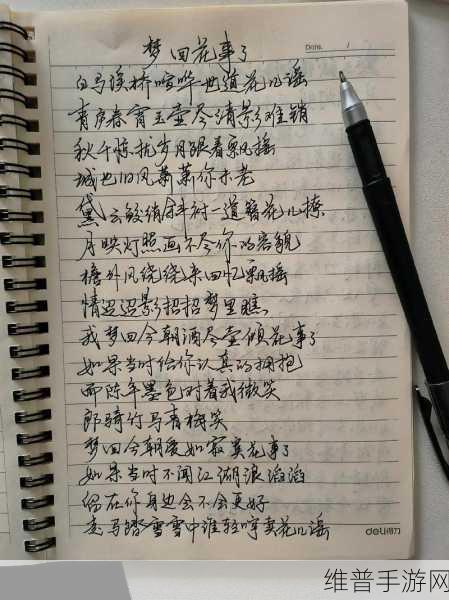 梦回花事了
Date. /
白马溪桥喧哗世道花儿谣
青庐春宵玉壶尽清影难销
秋千惊扰岁月跟着飘摇
城也旧风萧萧你未老
黛云鬓绡斜衬一道簪花儿撩
月映灯照画不尽你的容貌
檐外风绕绕来回忆飘摇
情迢迢影招招梦里瞧
我梦回今朝酒尽壶倾花事了
如果当时给你认真的拥抱
而陈年墨色对着我微笑
郎骑竹马青梅笑
梦回今朝爱如寂寞花事了
如果当时不闻江湖浪滔滔
留在你身边会不会更好
走马踏雪雪中谁轻哼卖花儿谣
deli得力
维普手游网